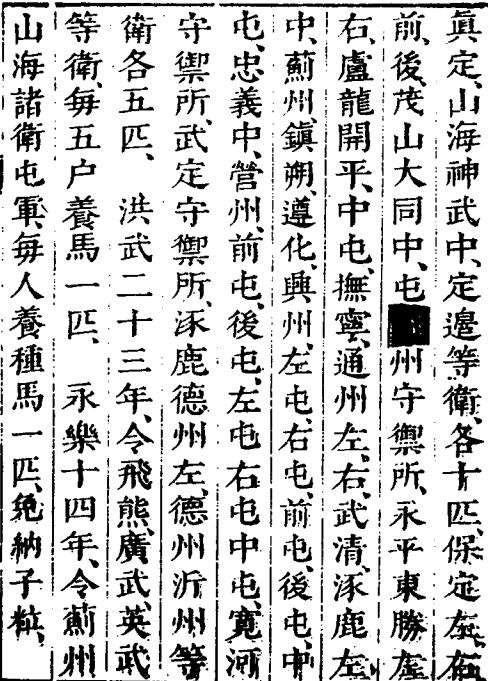 眞定、山海神武中、定邊等衛、各十匹、保定左、右
前、後、茂山大同中、屯州守禦所、永平東勝左
右、盧龍開平、中屯、撫寧、通州左、右、武清、涿鹿左
中、薊州、鎭朔、遵化、興州、左屯、右屯、前屯、後屯、中
屯、忠義中、營州、前屯、後屯、左屯右屯中屯、寬河
守禦所、武定守禦所、涿鹿德州左、德州沂州等
衛各五匹、　洪武二十三年、令飛熊、廣武、英武
等衛、每五户養馬一匹、　永樂十四年、令薊州
山海諸衛屯軍、每人養種馬一匹、免納子粒、